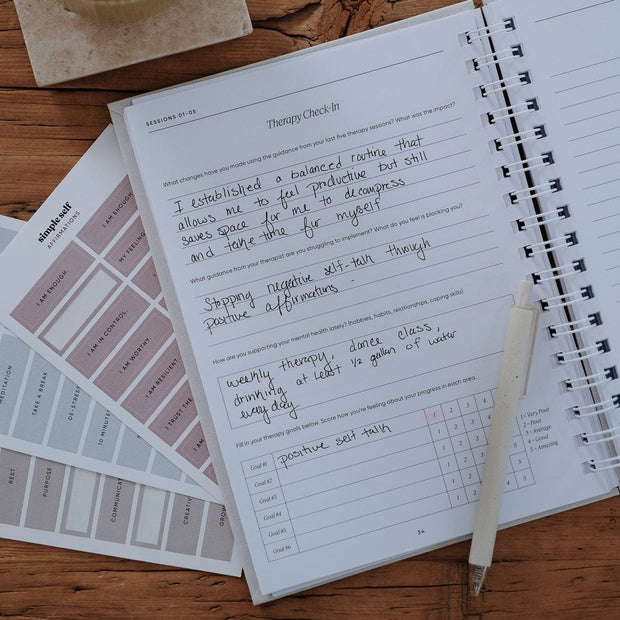 SESSIONS 01-05
Therapy Check-In
What changes have you made using the guidance from your last five therapy sessions? What was the impact?
I established a balanced routine that
allows me to feel productive but still
saves space for me to decompress
and take time for myself
What guidance from your therapist are you struggling to implement? What do you feel is blocking you?
Stopping negative self-talk through
positive affirmations -
How are you supporting your mental health lately? (hobbies, habits, relationships, coping skills)
weekly therapy, dance class,
drinking at least 1/2 gallon of water
everyday
Fill in your therapy goals below. Score how you're feeling about your progress in each area.
Goal #1 positive self talk 1 2 3 4 5
Goal #2 1 2 3 4 5
Goal #3 1 2 3 4 5
Goal #4 1 2 3 4 5
Goal #5 1 2 3 4 5
Goal #6 1 2 3 4 5
1 - Very Poor
2 - Poor
3 - Average
4 - Good
5 - Amazing
34
simple self
AFFIRMATIONS
I AM ENOUGH.
MY FEELING
I AM ENOUGH.
I AM IN CONTROL.
I AM WORTHY.
I AM RESILIENT.
I TRUST THE
I AM
MEDITATION
TAKE A BREAK
DE-STRESS
10 MINUTE
REST
PURPOSE
COMMUNICA
CREATIV
GROW